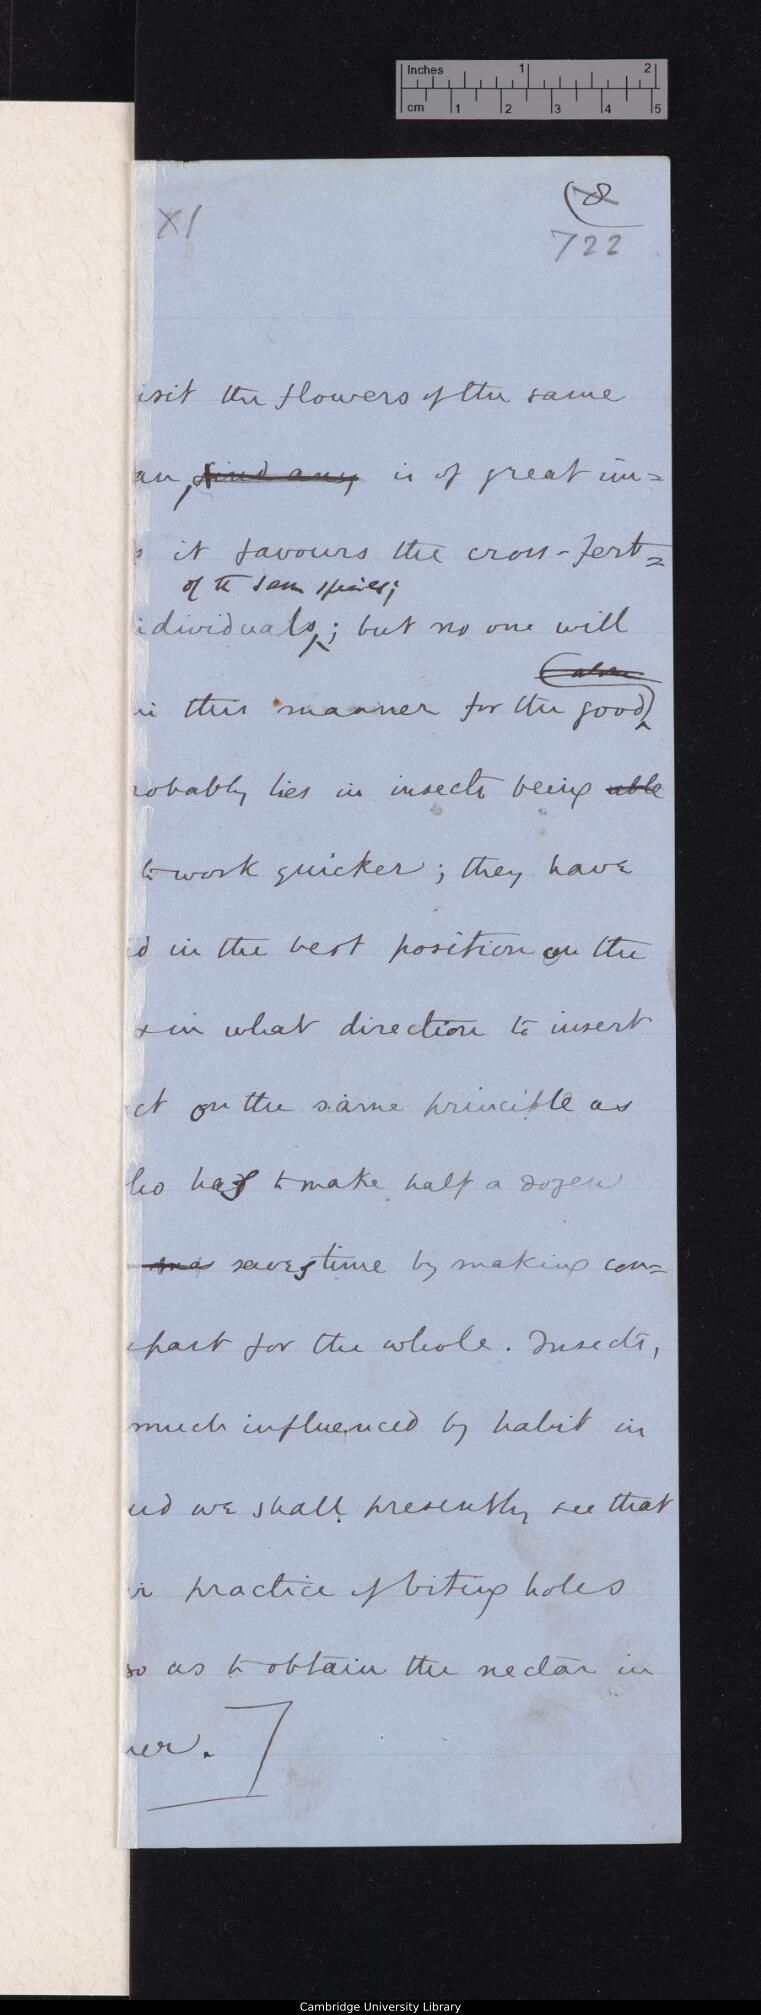 Inches 1 2
cm 1 2 3 4 5
XI
(8
722
isit the flowers of the same
an, find any is of great im=
s it favours the cross-fert=
of the same species;
dividuals; but no one will
(alone
in this manner for the good)
robably lies in insects being able
to work quicker; they have
d in the best position on the
in what direction to insert
ct on the same principle as
ho has to make half a dozen
saves time by making con=
part for the whole. Insects,
much influenced by habit in
nd we shall presently see that
r practice of biting holes
so as to obtain the nectar in
ner.
Cambridge University Library